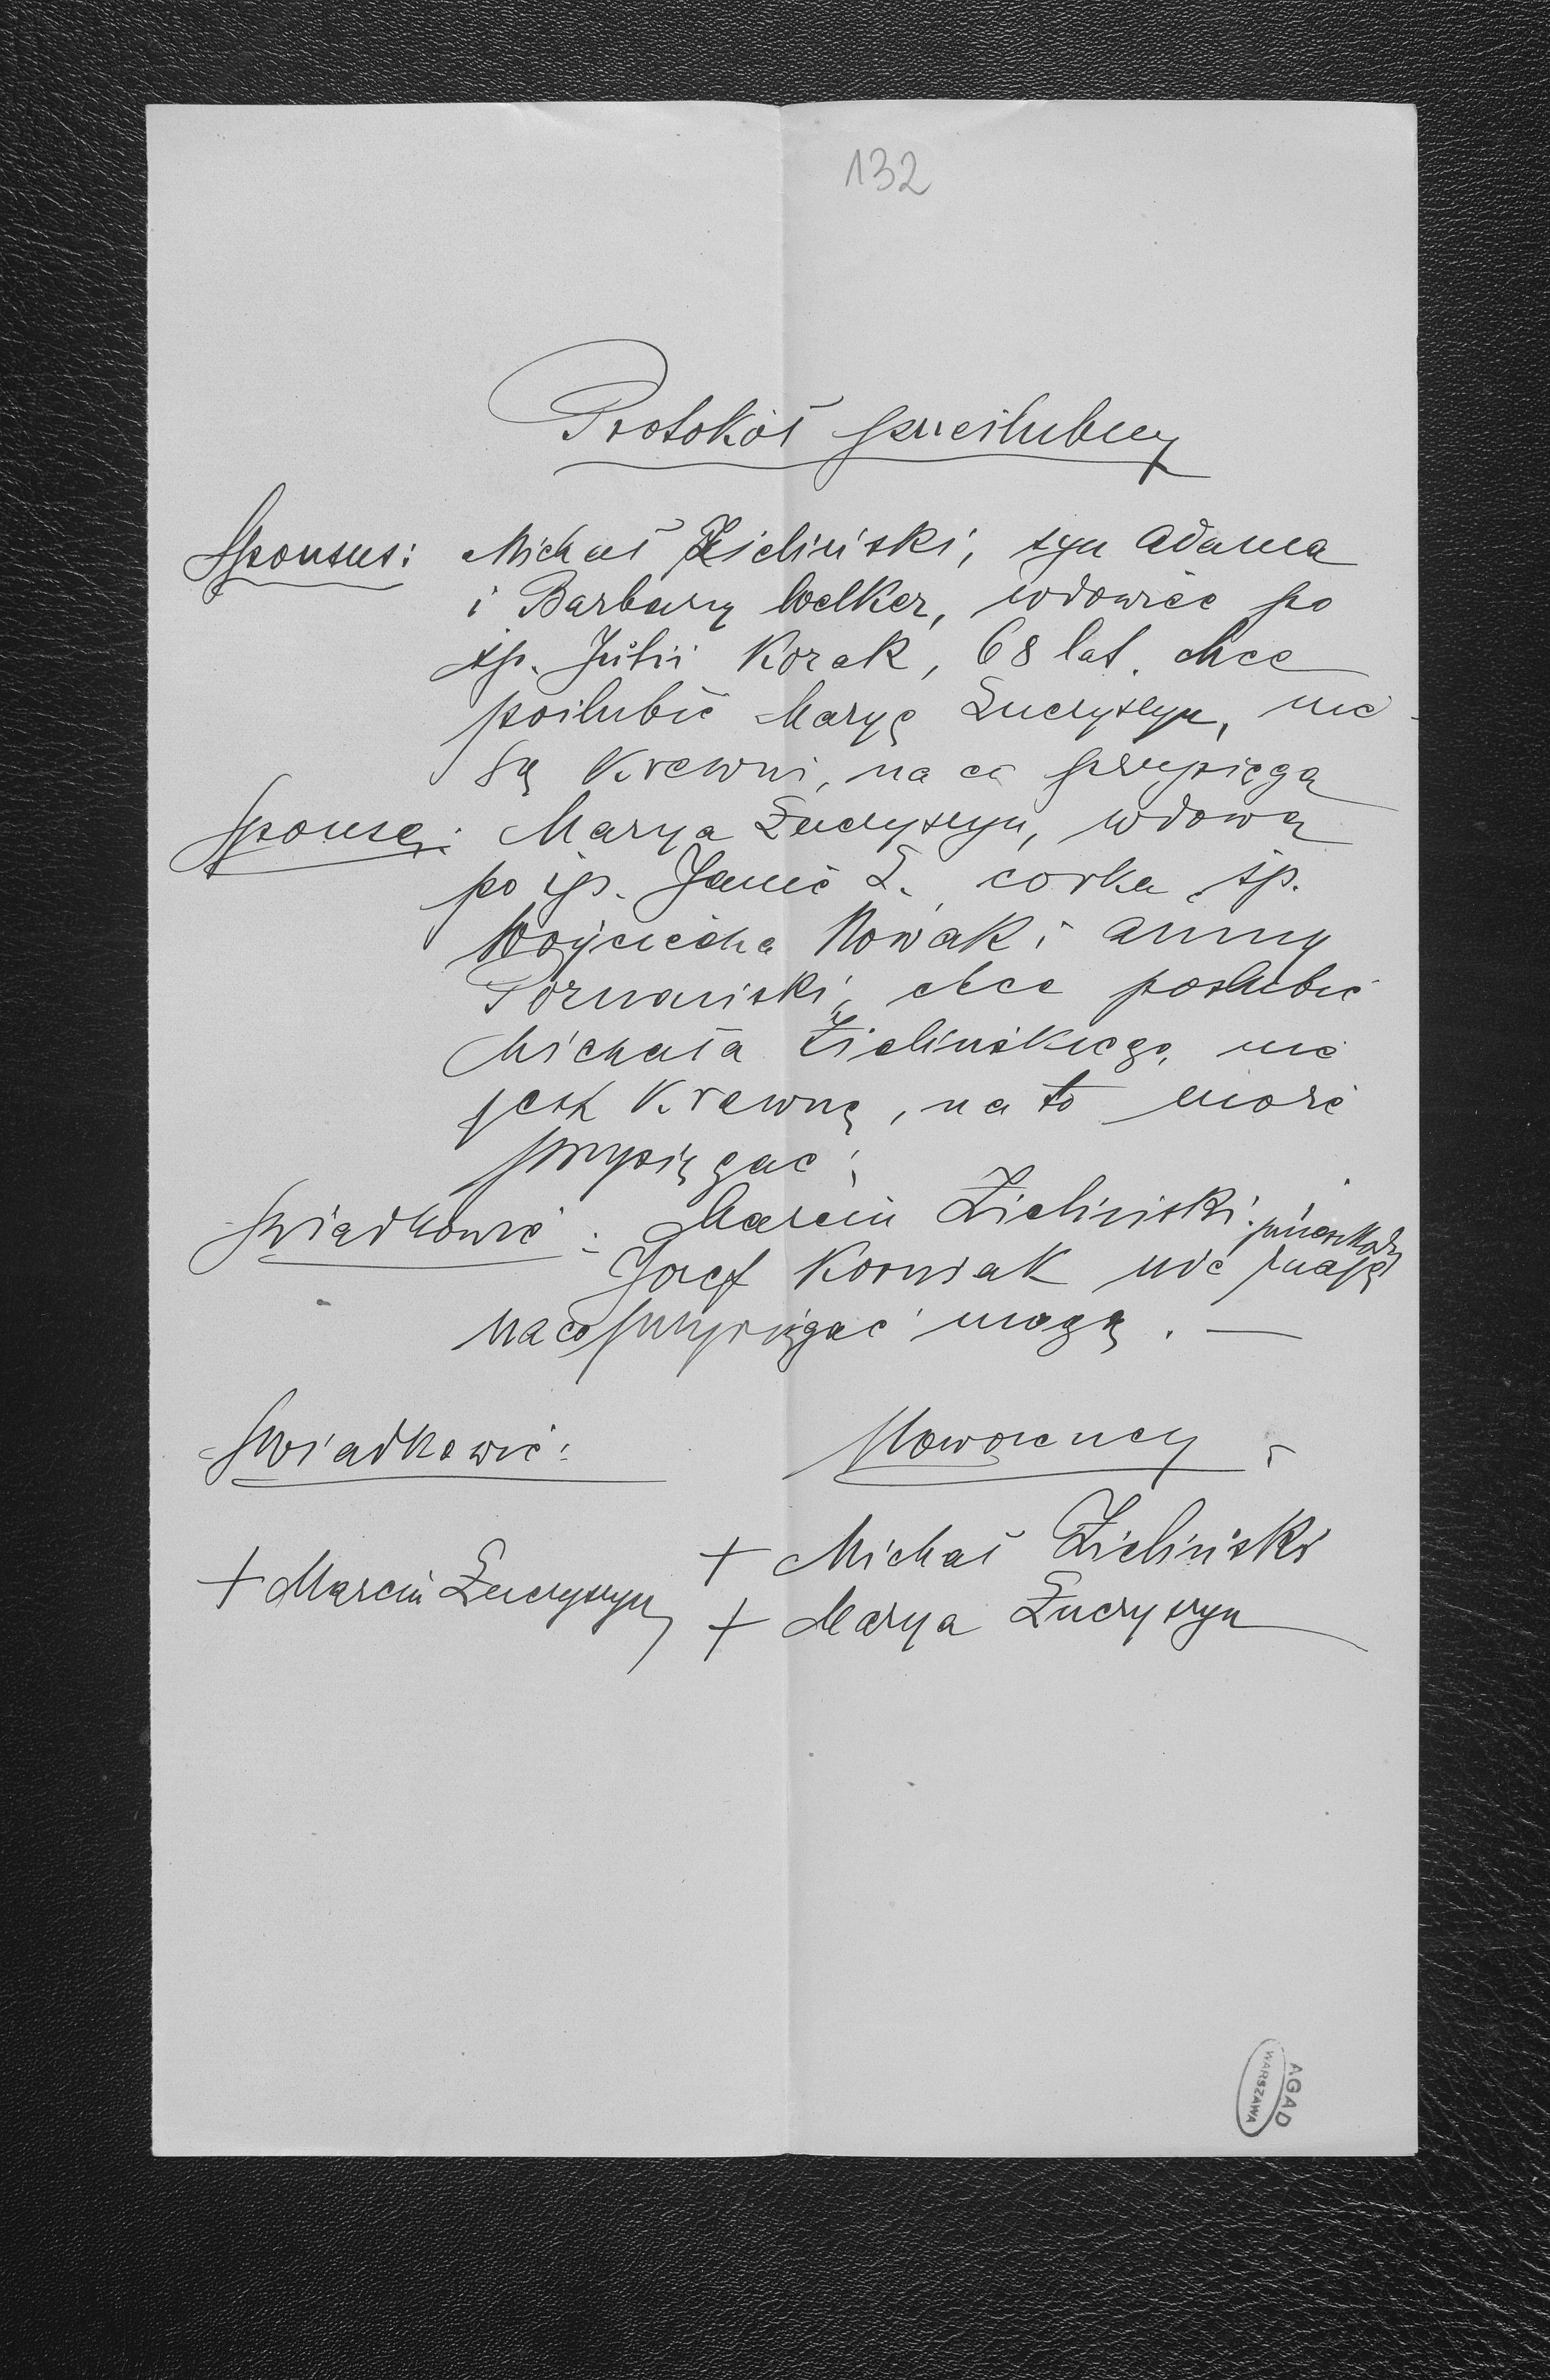 132
Protokół przedślubny
Sponsus: Michał Zieliński, syn Adama
i Barbary Welker, wdowiec po
śp. Julii Korak, 68 lat. chce
poślubić Maryę Łuczyszyn, nie
są krewni, na co przysięga
Sponsa: Marya Łuczyszyn, wdowa
po śp. Janie Ł. córka śp.
Wojciecha Nowak i Anny
Poznański, chce poślubić
Michała Zielińskiego, nie
jest krewną, na to może
przysięgać;
Świadkowie: Marcin Zieliński. przeszkody
Józef Korniak nie znają
na co przysięgać mogą. —
Świadkowie: Nowożeńcy:
+ Michał Zieliński
+ Marcin Łuczyszyn + Marya Łuczyszyn
AGAD
WARSZAWA